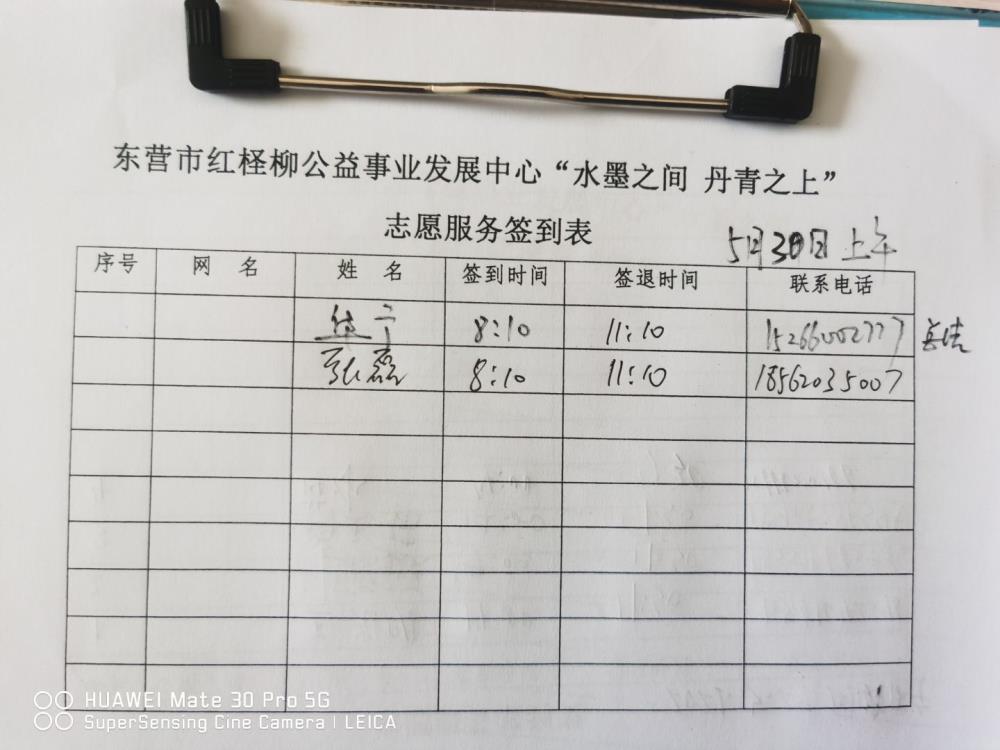 东营市红柽柳公益事业发展中心“水墨之间 丹青之上”
志愿服务签到表
5月30日上午
序号 网 名 姓 名 签到时间 签退时间 联系电话
8:10 11:10 15266002777 总结
张磊 8:10 11:10 18562035007
HUAWEI Mate 30 Pro 5G
SuperSensing Cine Camera | LEICA